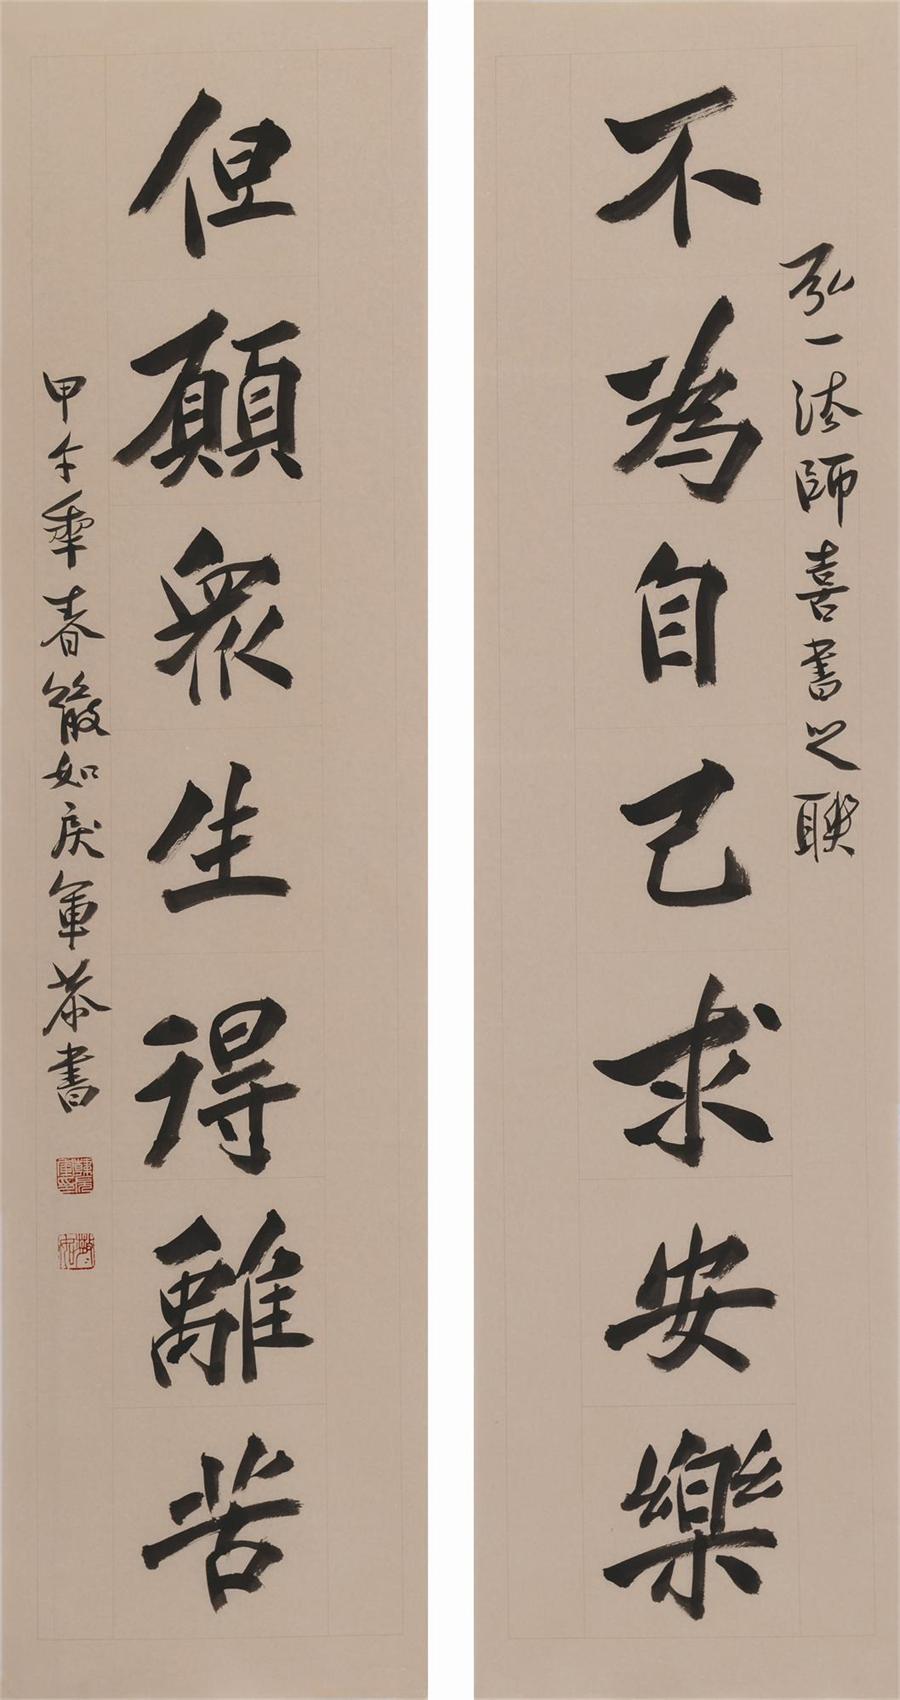 弘一法師喜書之聯
不為自己求安樂
但願眾生得離苦
甲午秊春如軍恭書